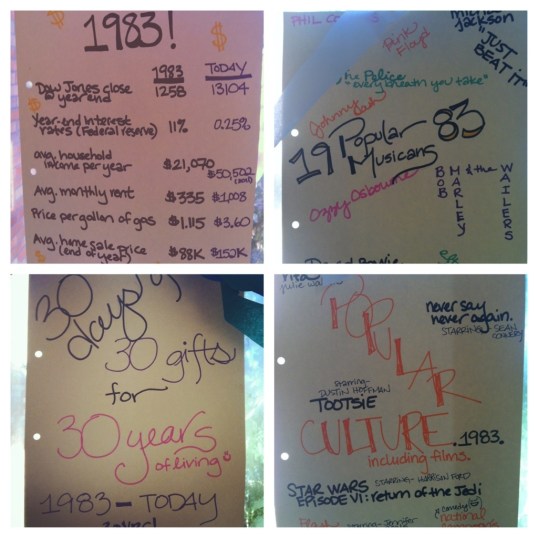 1983!
$
$
1983 TODAY
$
Dow Jones close @ year end 1258 13104
Year-end Interest rates (Federal reserve) 11% 0.25%
avg. household income per year $21,070 $50,502
Avg. monthly rent $335 $1,008
Price per gallon of gas $1.115 $3.60
Avg. home sale price (end of year) $88K $152K
$
PHIL
Jackson
"JUST BEAT IT"
Pink Floyd
The Police
"every breath you take"
Johnny Cash
19 Popular Musicans 83
Ozzy Osbourne
BOB MARLEY & the WAILERS
30 days
30 gifts
for
30 years
of living
1983 - TODAY
julie wa
never say
never again.
STARRING - SEAN CONNERY
POPULAR
starring-
DUSTIN HOFFMAN
TOOTSIE
CULTURE .1983.
including films.
STAR WARS STARRING - HARRISON FORD
EPISODE VI: return of the Jedi
comedy
national
Jennifer